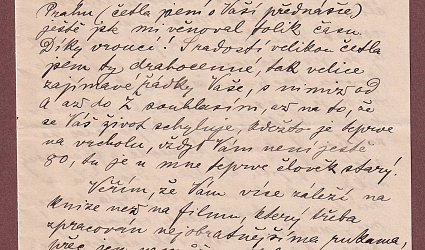 Prahu (četla jsem o Vaší přednášce)
ještě jak mi věnoval tolik času.
Díky vroucí! S radostí velikou četla
jsem ty drahocenné, tak velice
zajímavé řádky Vaše, s nimiž od
A až do Z souhlasím, až na to, že
se Váš život schyluje, kdežto je teprve
na vrcholu, vždyť Vám není ještě
80, tu je u mne teprve člověk starý!
Věřím, že Vám více záleží na
knize než na filmu, který třeba
zpracován nejobratnějšíma rukama,